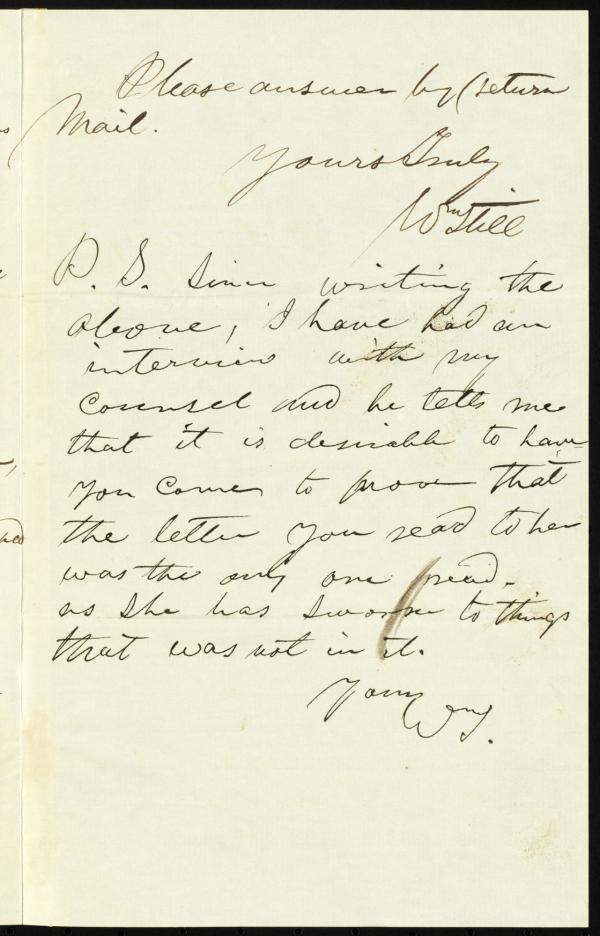 Please answer by return
Mail.
Yours Truly
Wm Still
P. S. Since writing the
above, I have had an
interview with my
counsel and he tells me
that it is desirable to have
you come to prove that
the letter you read to her
was the only one read.
as she has sworn to things
that was not in it.
Yours
Wm S.